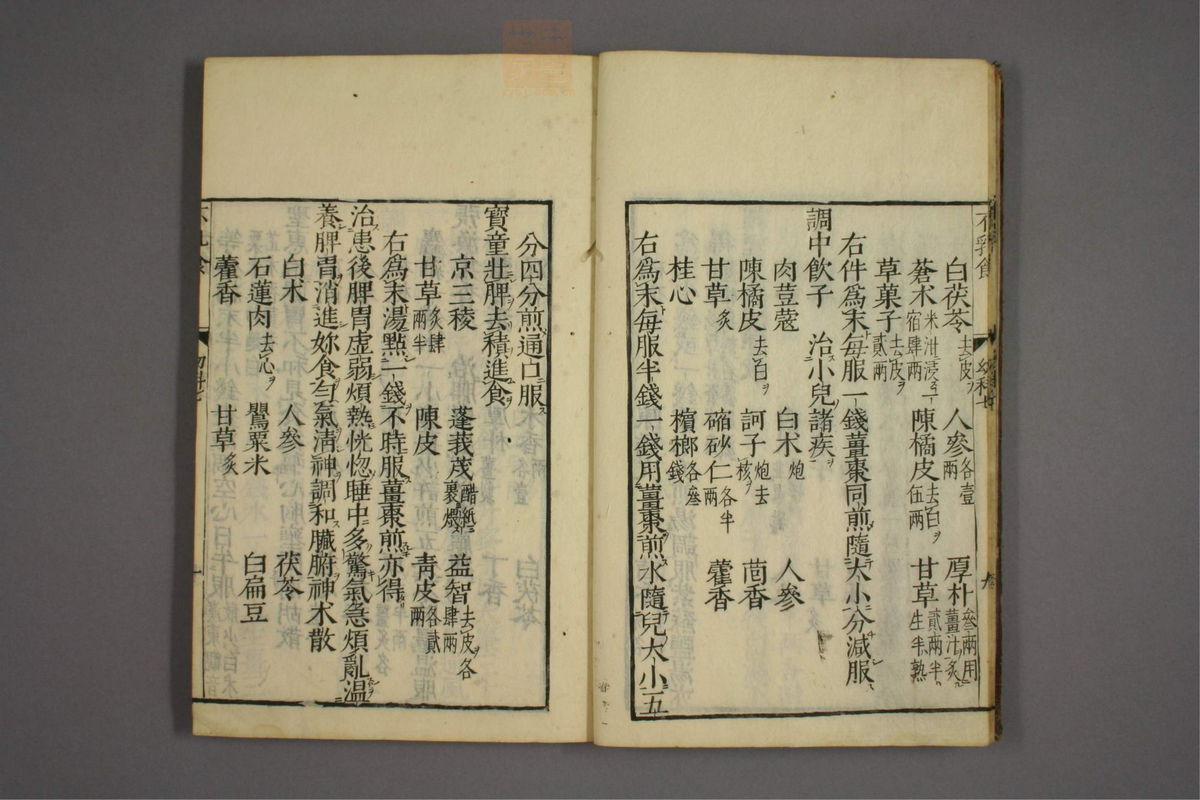 不乳食
幼科七
白茯苓去皮 人參各壹兩 厚朴叄兩用薑汁炙
蒼术米泔浸宿肆兩 陳橘皮去白伍兩 甘草貳兩半生半熟
草菓子去皮貳兩
右件爲末毎服一錢薑棗同煎隨大小分減服
調中飲子 治小兒諸疾
肉荳蔻 白术炮 人參
陳橘皮去白 訶子炮去核 茴香
甘草炙 縮砂仁各半兩 藿香
桂心 檳榔各叄錢
右爲末毎服半錢一錢用薑棗煎水隨兒大小五
分四分煎通口服
寶童壯脾去積進食
京三稜 蓬莪茂醋紙裹煨 益智去皮各肆兩
甘草炙肆兩半 陳皮 靑皮各貳兩
右爲末湯㸃一錢不時服薑棗煎亦得
治患後脾胃虛弱煩熱恍惚睡中多驚氣急煩亂温
養脾胃消進妳食匀氣清神調和臟腑神术散
白术 人參 茯苓
石蓮肉去心 罌粟米 白扁豆
藿香 甘草炙